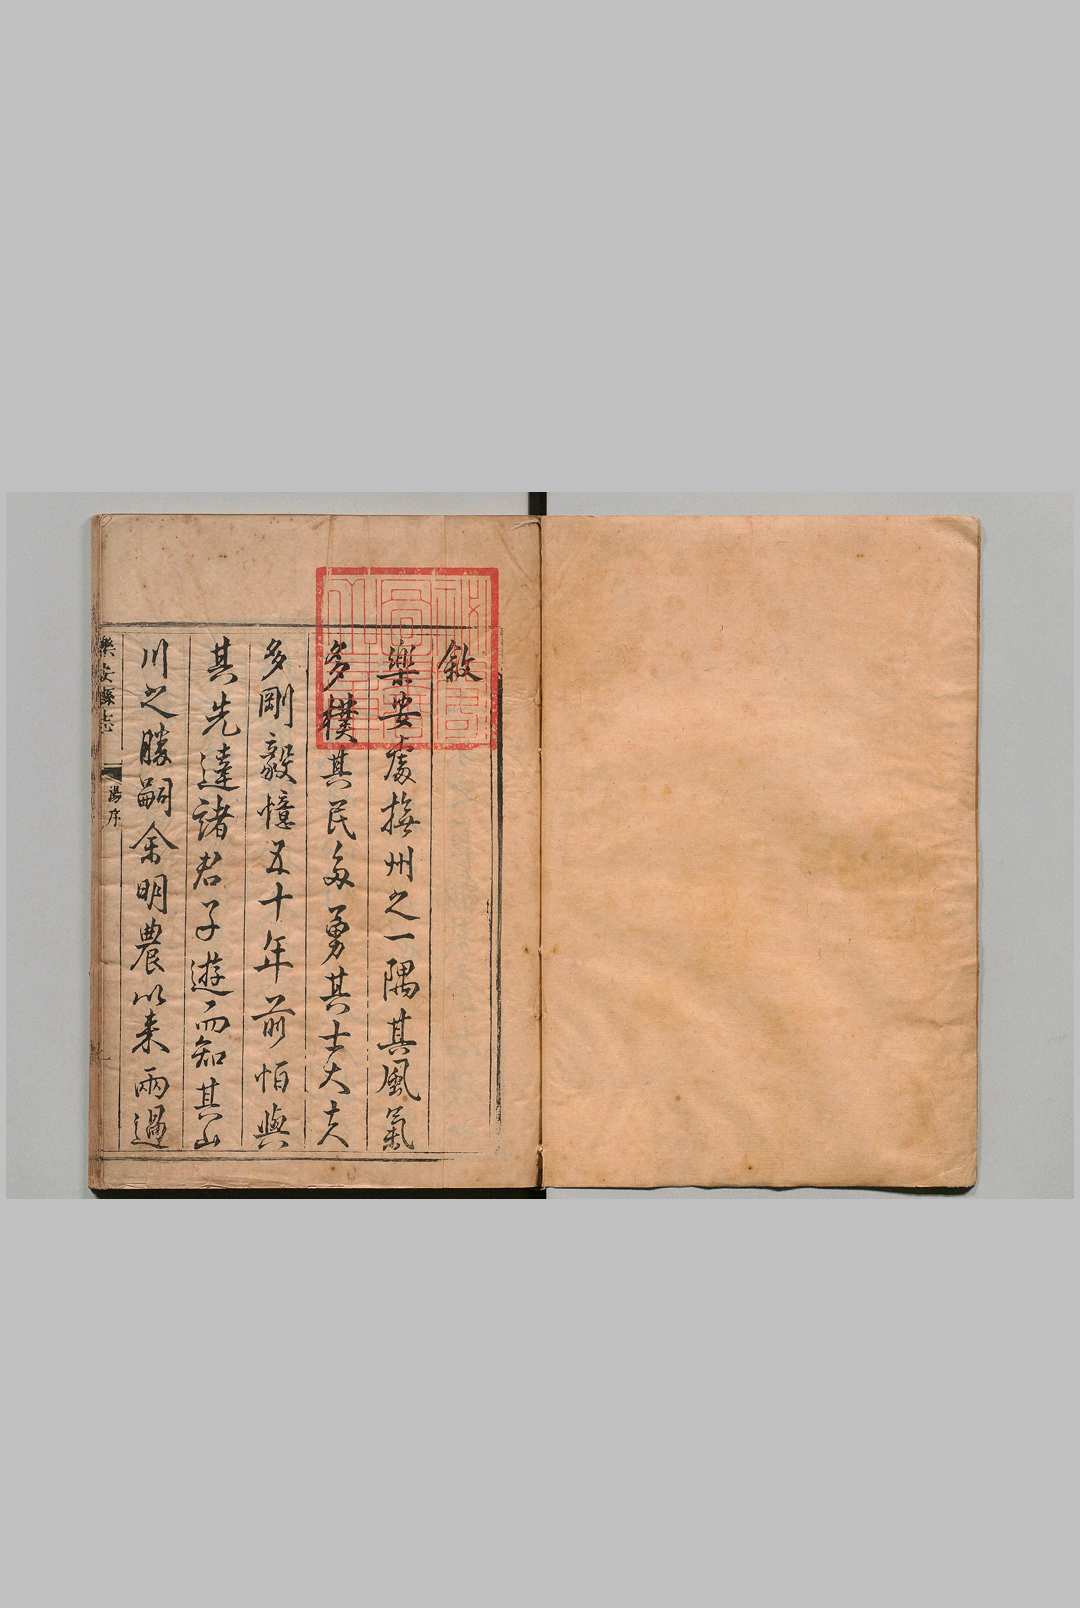 敘
樂安處撫州之一隅其風氣
多樸其民多勇其士大夫
多剛毅憶五十年前恒與
其先達諸君子遊而知其山
川之勝嗣余明農以来兩過
樂安縣志
湯序